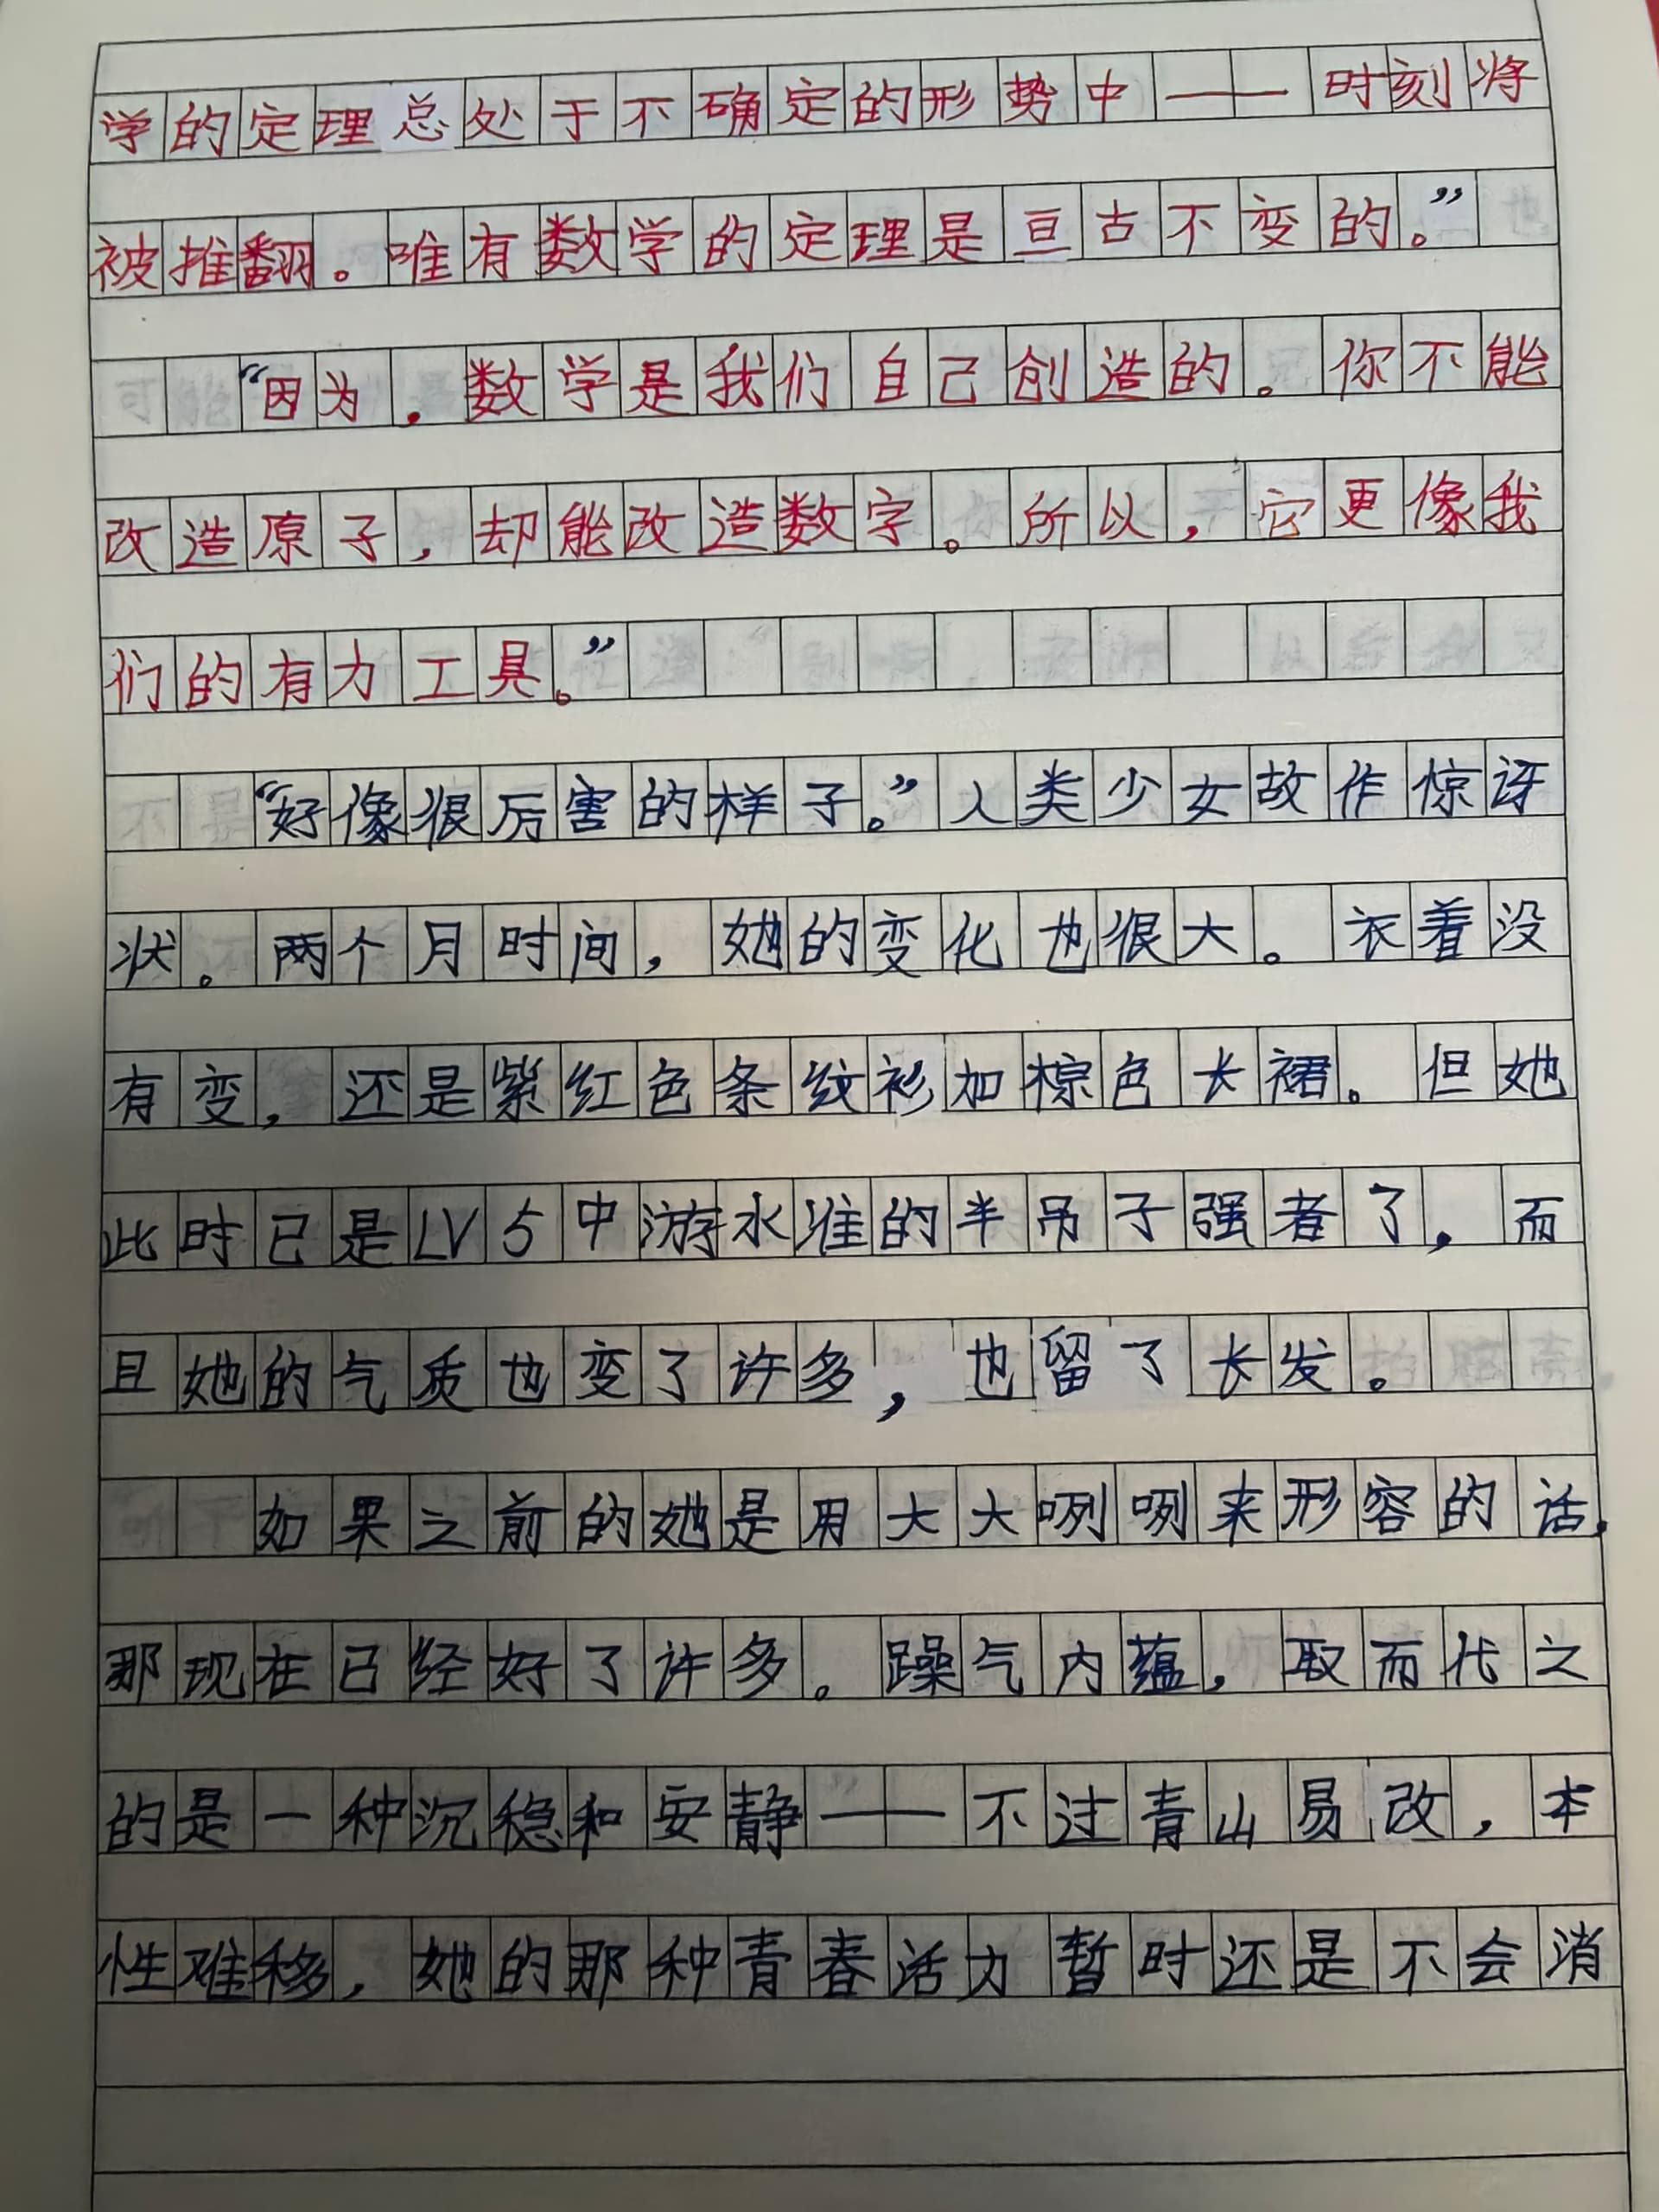 学的定理总处于不确定的形势中——时刻将
被推翻。唯有数学的定理是亘古不变的。”
“因为，数学是我们自己创造的。你不能
改造原子，却能改造数字。所以，它更像我
们的有力工具。”
“好像很厉害的样子。”人类少女故作惊讶
状。两个月时间，她的变化也很大。衣着没
有变，还是紫红色条纹衫加棕色长裙。但她
此时已是LV5中游水准的半吊子强者了，而
且她的气质也变了许多，也留了长发。
如果之前的她是用大大咧咧来形容的话，
那现在已经好了许多。躁气内蕴，取而代之
的是一种沉稳和安静——不过青山易改，本
性难移，她的那种青春活力暂时还是不会消